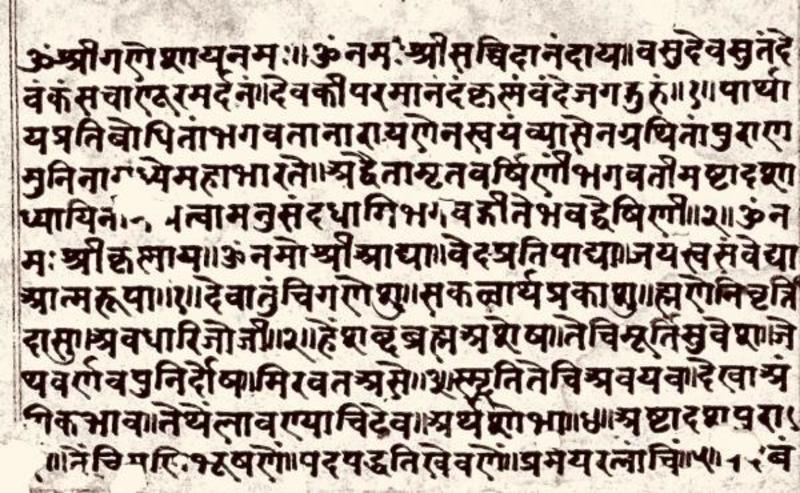 ॐ श्रीगणेशायनमः॥ॐ नमः श्रीसच्चिदानंदाय॥वसुदेवसुतंदे
वंकंसचाणूरमर्दनं॥देवकीपरमानंदंकृष्णंवंदेजगद्गुरुं॥१॥पार्था
यप्रतिबोधितांभगवतानारायणेनस्वयंव्यासेनग्रथितांपुराण
मुनिनामध्येमहाभारते॥अद्वैतामृतवर्षिणींभगवतीमष्टादशा
ध्यायिनीं त्वामनुसंदधामिभगवद्गीतेभवद्वेषिणीं॥२॥ॐ न
मः श्रीकृष्णाय॥ॐ नमो श्रीआद्या॥वेदप्रतिपाद्या॥जयस्वसंवेद्या
आत्मरूपा॥१॥देवातुंचिगणेशु॥सकळार्थप्रकाशु॥ह्मणेनिवृत्ति
दासु॥अवधारिजोजी॥२॥हेंशब्दब्रह्मअशेषा॥तेचिमूर्तिसुवेषा॥जे
थवर्णवपुनिर्दोषा॥मिरवतअसे॥३॥स्मृतितेचिअवयव॥देखाअं
गिकभाव॥तेथेंलावण्याचिठेव॥अर्थशोभा॥४॥अष्टादशपुरा
भूषणें॥पदपद्धतिखेवणें॥प्रमेयरत्नांचिं॥५॥